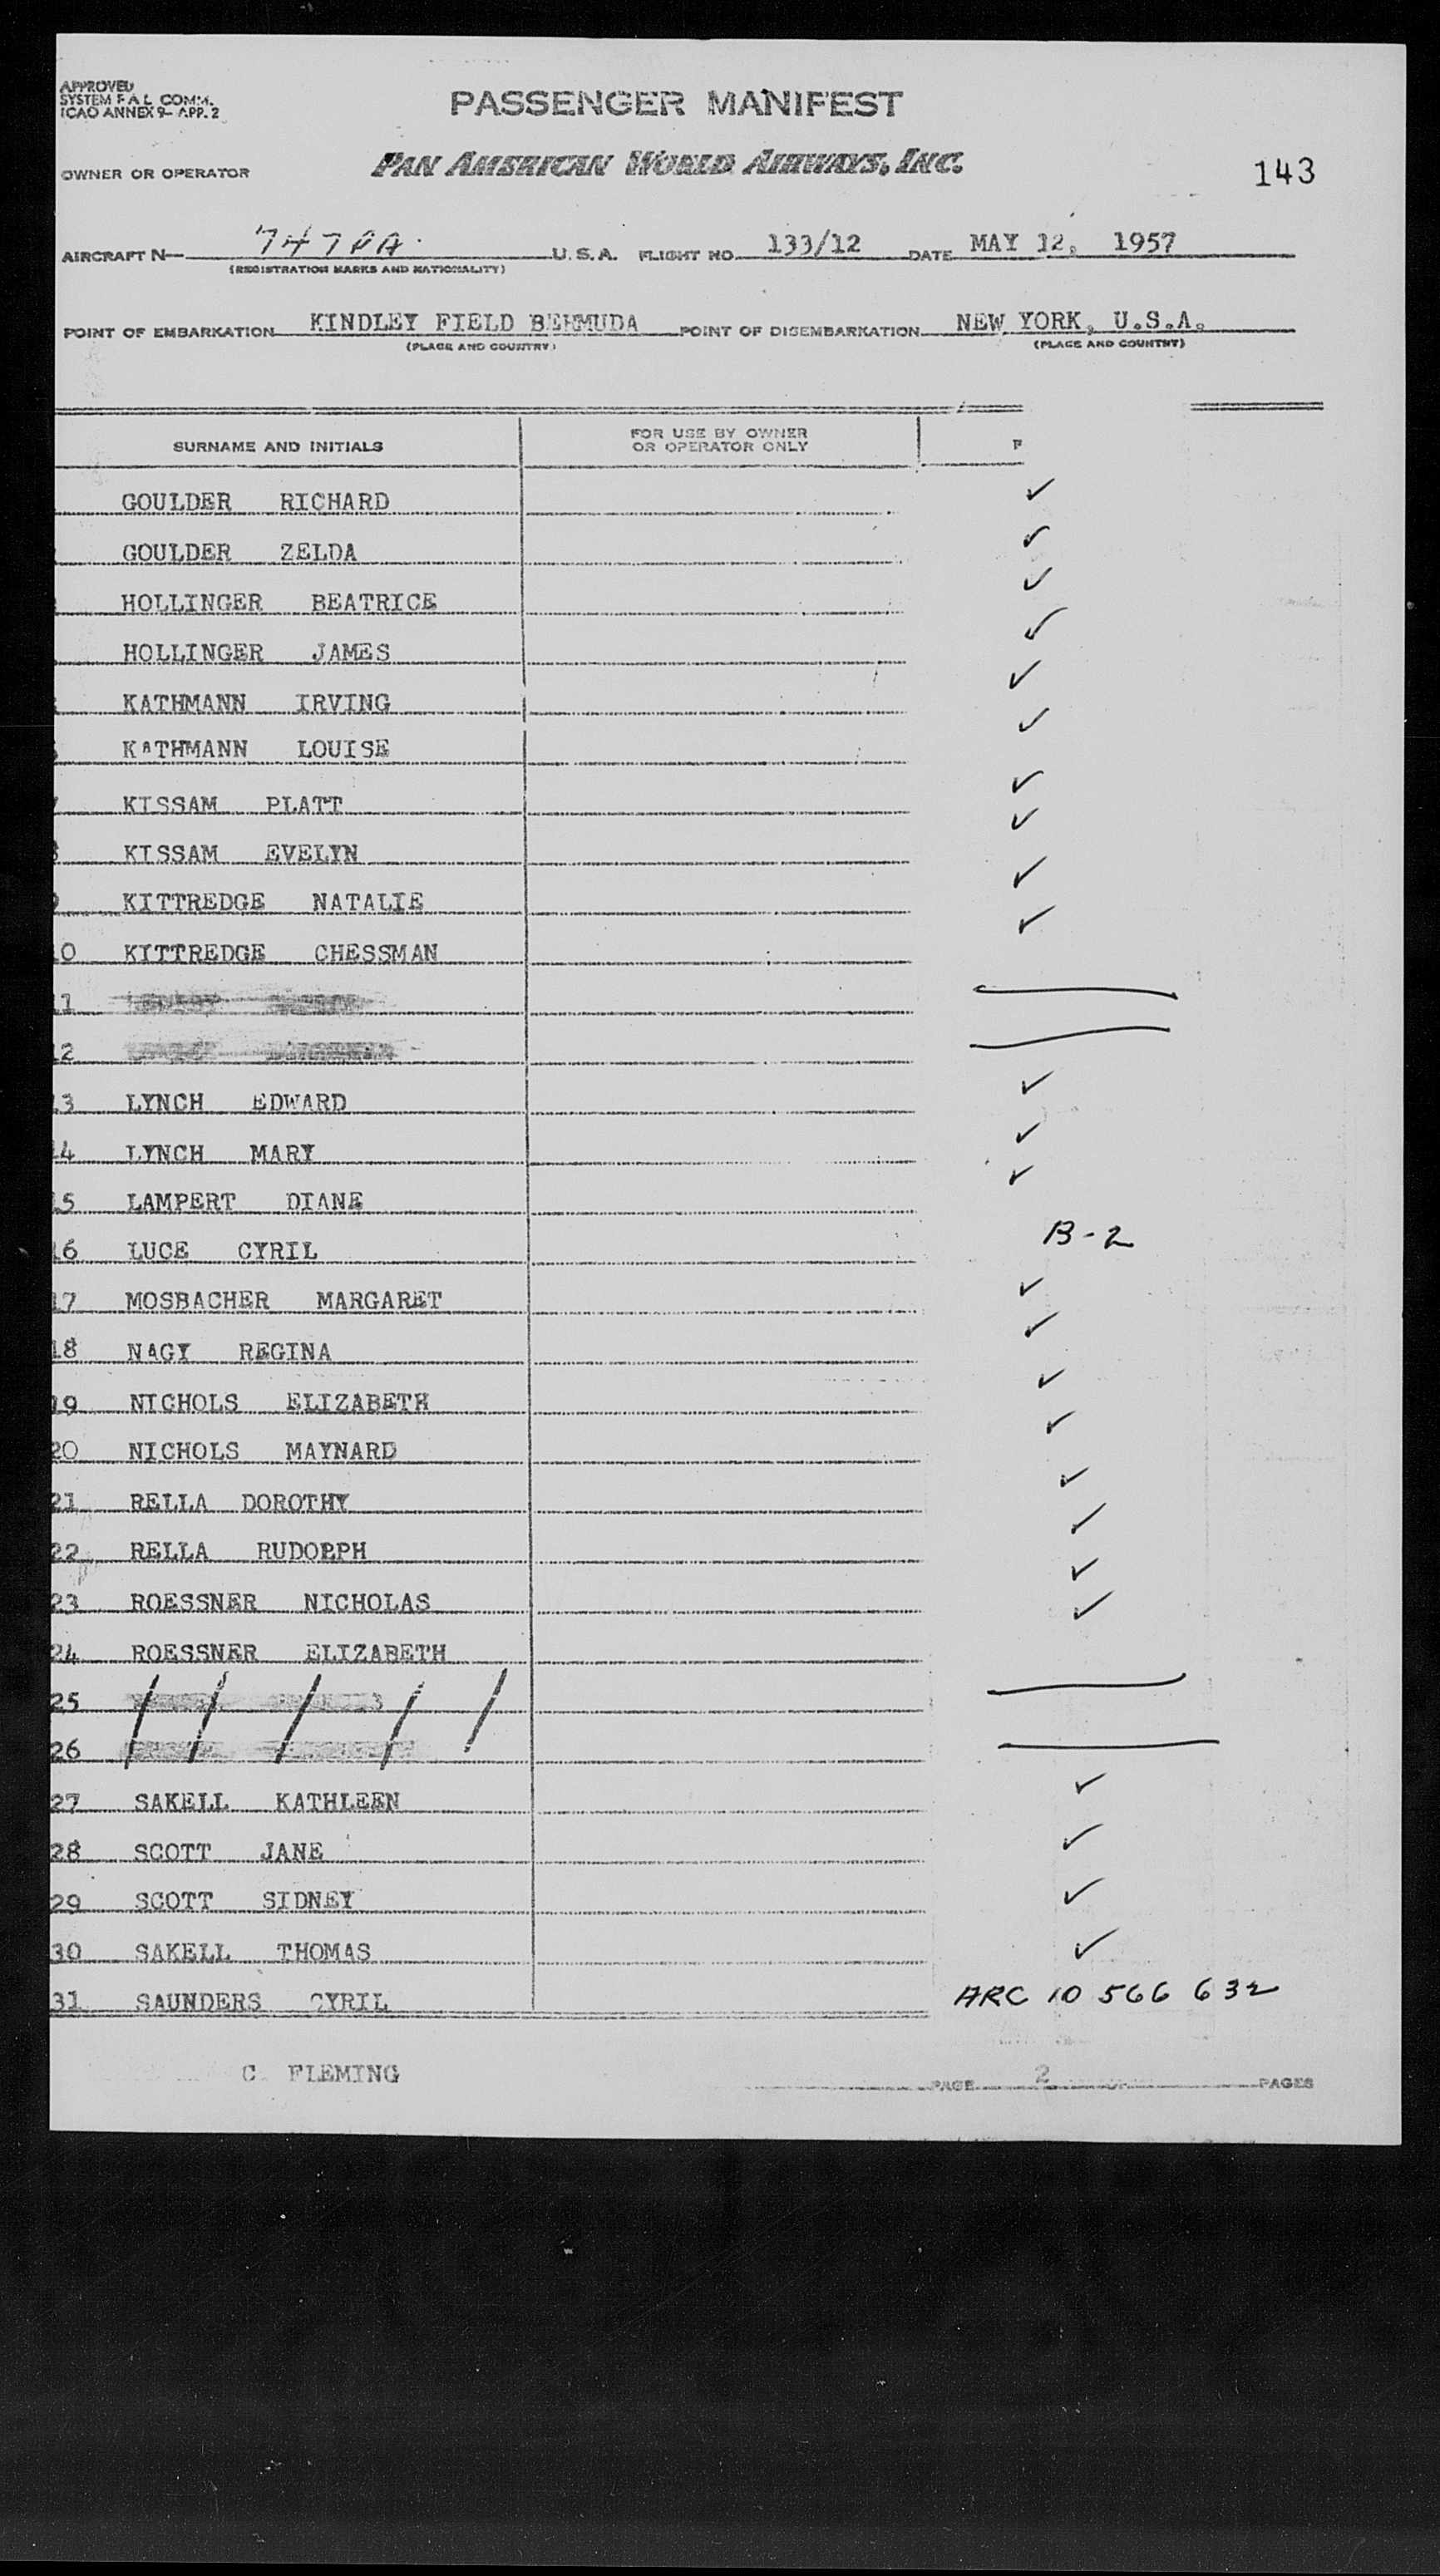 APPROVED
SYSTEM F A L COMM.
ICAO ANNEX 9- APP. 2
PASSENGER MANIFEST
OWNER OR OPERATOR
PAN AMERICAN WORLD AIRWAYS, INC.
143
AIRCRAFT N— 747PA U. S. A. FLIGHT NO. 133/12 DATE MAY 12, 1957
(REGISTRATION MARKS AND NATIONALITY)
POINT OF EMBARKATION KINDLEY FIELD BERMUDA POINT OF DISEMBARKATION NEW YORK, U.S.A.
(PLACE AND COUNTRY) (PLACE AND COUNTRY)
SURNAME AND INITIALS FOR USE BY OWNER OR OPERATOR ONLY F
GOULDER RICHARD ✓
GOULDER ZELDA ✓
HOLLINGER BEATRICE ✓
HOLLINGER JAMES ✓
KATHMANN IRVING ✓
KATHMANN LOUISE ✓
KISSAM PLATT ✓
KISSAM EVELYN ✓
KITTREDGE NATALIE ✓
10 KITTREDGE CHESSMAN ✓
11
12
13 LYNCH EDWARD ✓
14 LYNCH MARY ✓
15 LAMPERT DIANE ✓
16 LUCE CYRIL B-2
17 MOSBACHER MARGARET ✓
18 NAGY REGINA ✓
19 NICHOLS ELIZABETH ✓
20 NICHOLS MAYNARD ✓
21 RELLA DOROTHY ✓
22 RELLA RUDOPPH ✓
23 ROESSNER NICHOLAS ✓
24 ROESSNER ELIZABETH ✓
25
26
27 SAKELL KATHLEEN ✓
28 SCOTT JANE ✓
29 SCOTT SIDNEY ✓
30 SAKELL THOMAS ✓
31 SAUNDERS CYRIL ARC 10 566 632
C FLEMING PAGE 2 OF PAGES